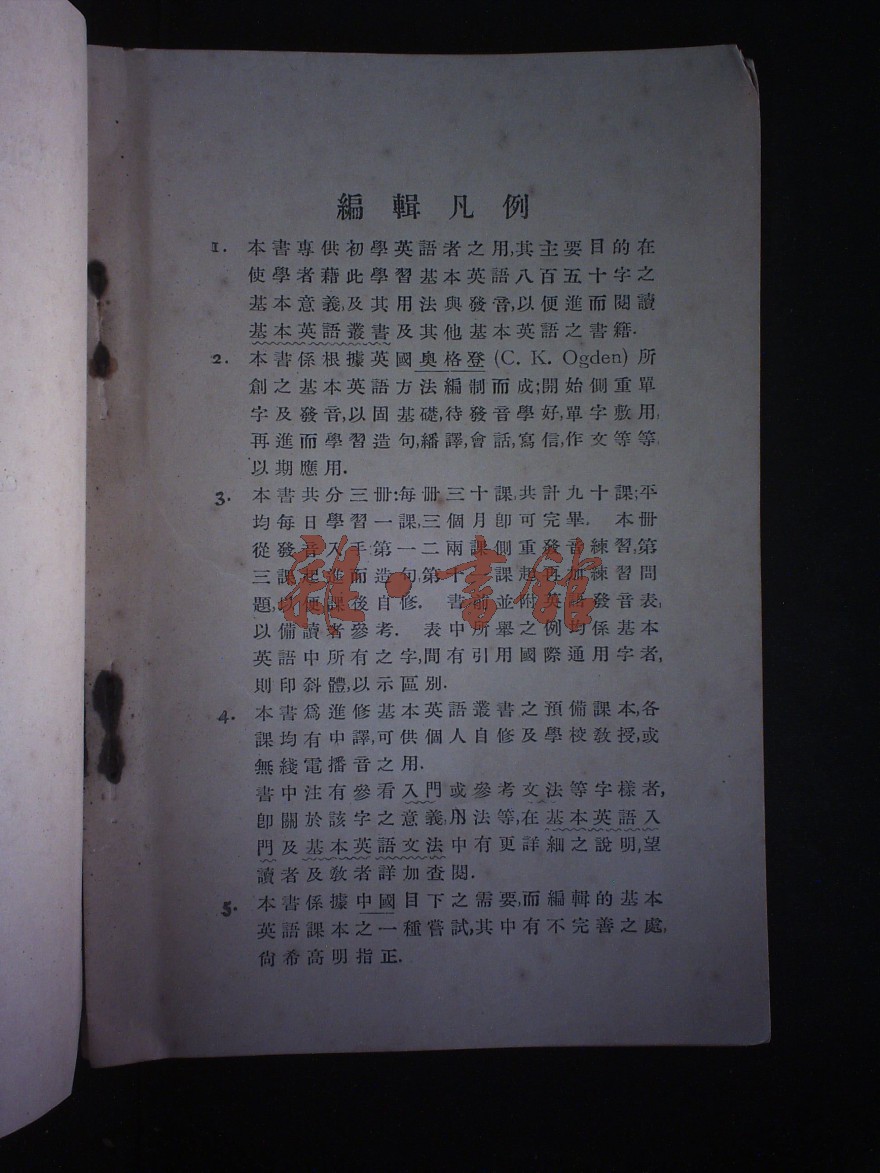 編輯凡例
1. 本書專供初學英語者之用,其主要目的在
使學者藉此學習基本英語八百五十字之
基本意義,及其用法與發音,以便進而閱讀
基本英語叢書及其他基本英語之書籍.
2. 本書係根據英國奧格登 (C. K. Ogden) 所
創之基本英語方法編制而成;開始側重單
字及發音,以固基礎,待發音學好,單字敷用,
再進而學習造句,繙譯,會話,寫信,作文等等,
以期應用.
3. 本書共分三册:每册三十課,共計九十課;平
均每日學習一課,三個月卽可完畢. 本册
從發音入手第一二兩課側重發音練習,第
三課起進而造句,第十課起再加練習問
題,以便課後自修. 書前並附英語發音表,
以備讀者參考. 表中所舉之例均係基本
英語中所有之字,間有引用國際通用字者,
則印斜體,以示區别.
4. 本書爲進修基本英語叢書之預備課本,各
課均有中譯,可供個人自修及學校敎授,或
無綫電播音之用.
書中注有參看入門或參考文法等字樣者,
卽關於該字之意義,用法等,在基本英語入
門及基本英語文法中有更詳細之說明,望
讀者及敎者詳加查閱.
5. 本書係據中國目下之需要,而編輯的基本
英語課本之一種嘗試,其中有不完善之處,
尙希高明指正.
雜·書館